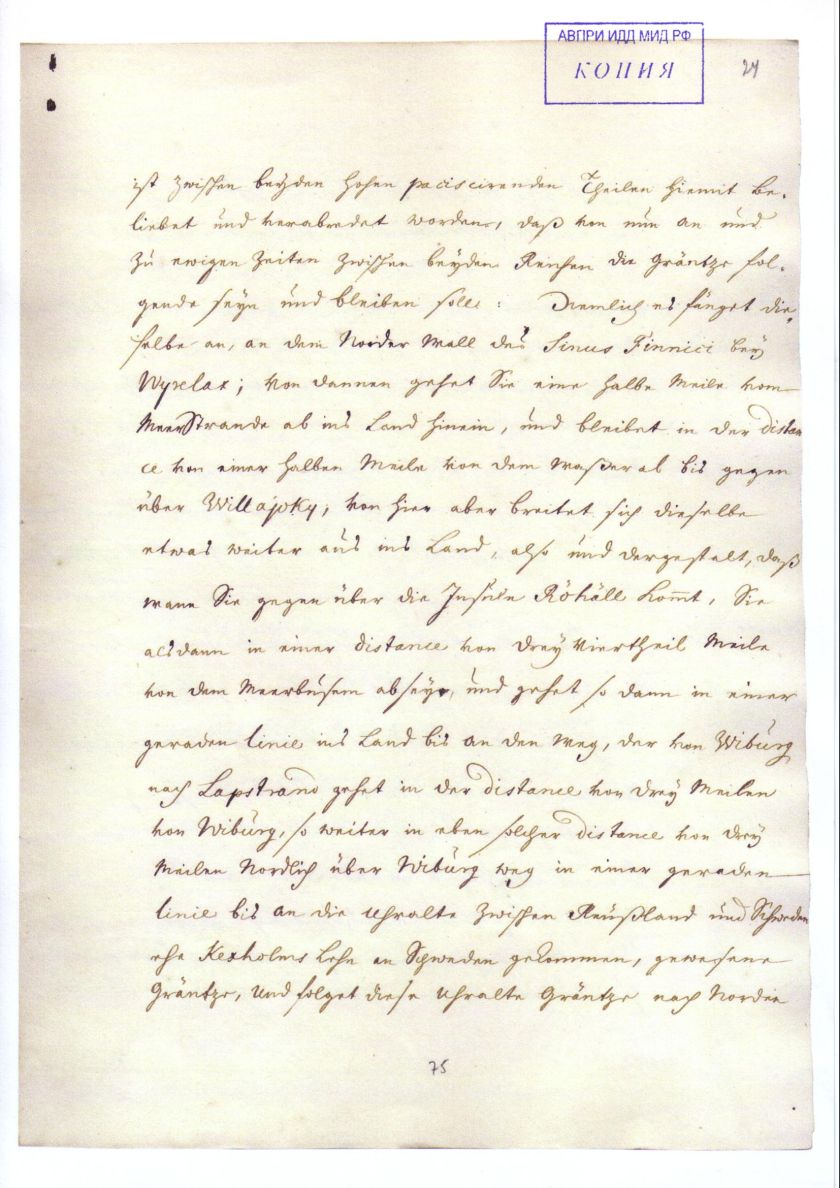 АВПРИ ИДД МИД РФ
КОПИЯ
24
ist zwischen beyden hohen paciscirenden Theilen hiemit be-
liebet und verabredet worden, daß von nun an und
zu ewigen Zeiten zwischen beyden Reichen die Gräntze fol-
gende seyn und bleiben solle: Nemlich es fänget die-
selbe an, an dem Norder Wall des Sinus Finnici bey
Wyrelax; von dannen gehet Sie eine halbe Meile vom
MeerStrande ab ins Land hinein, und bleibet in der distan
ce von einer halben Meile von dem Waßer ab bis gegen
über Willajoky, von hier aber breitet sich dieselbe
etwas weiter aus ins Land, also und dergestalt, daß
wann Sie gegen über die Insuln Röhäll kommt, Sie
alsdann in einer distance von drey Viertheil Meile
von dem Meerbusem abseye, und gehet so dann in einer
geraden linie ins Land bis an den Weg, der von Wiburg
nach Lapstrand gehet in der distance von drey Meilen
von Wiburg, so weiter in eben solcher distance von drey
Meilen Nordlich über Wiburg weg in einer geraden
linie bis an die Uhralte zwischen Reußland und Schweden
ehe Kexholms Lehn an Schweden gekommen, gewesene
Gräntze, und folget diese Uhralte Gräntze nach Norden
75